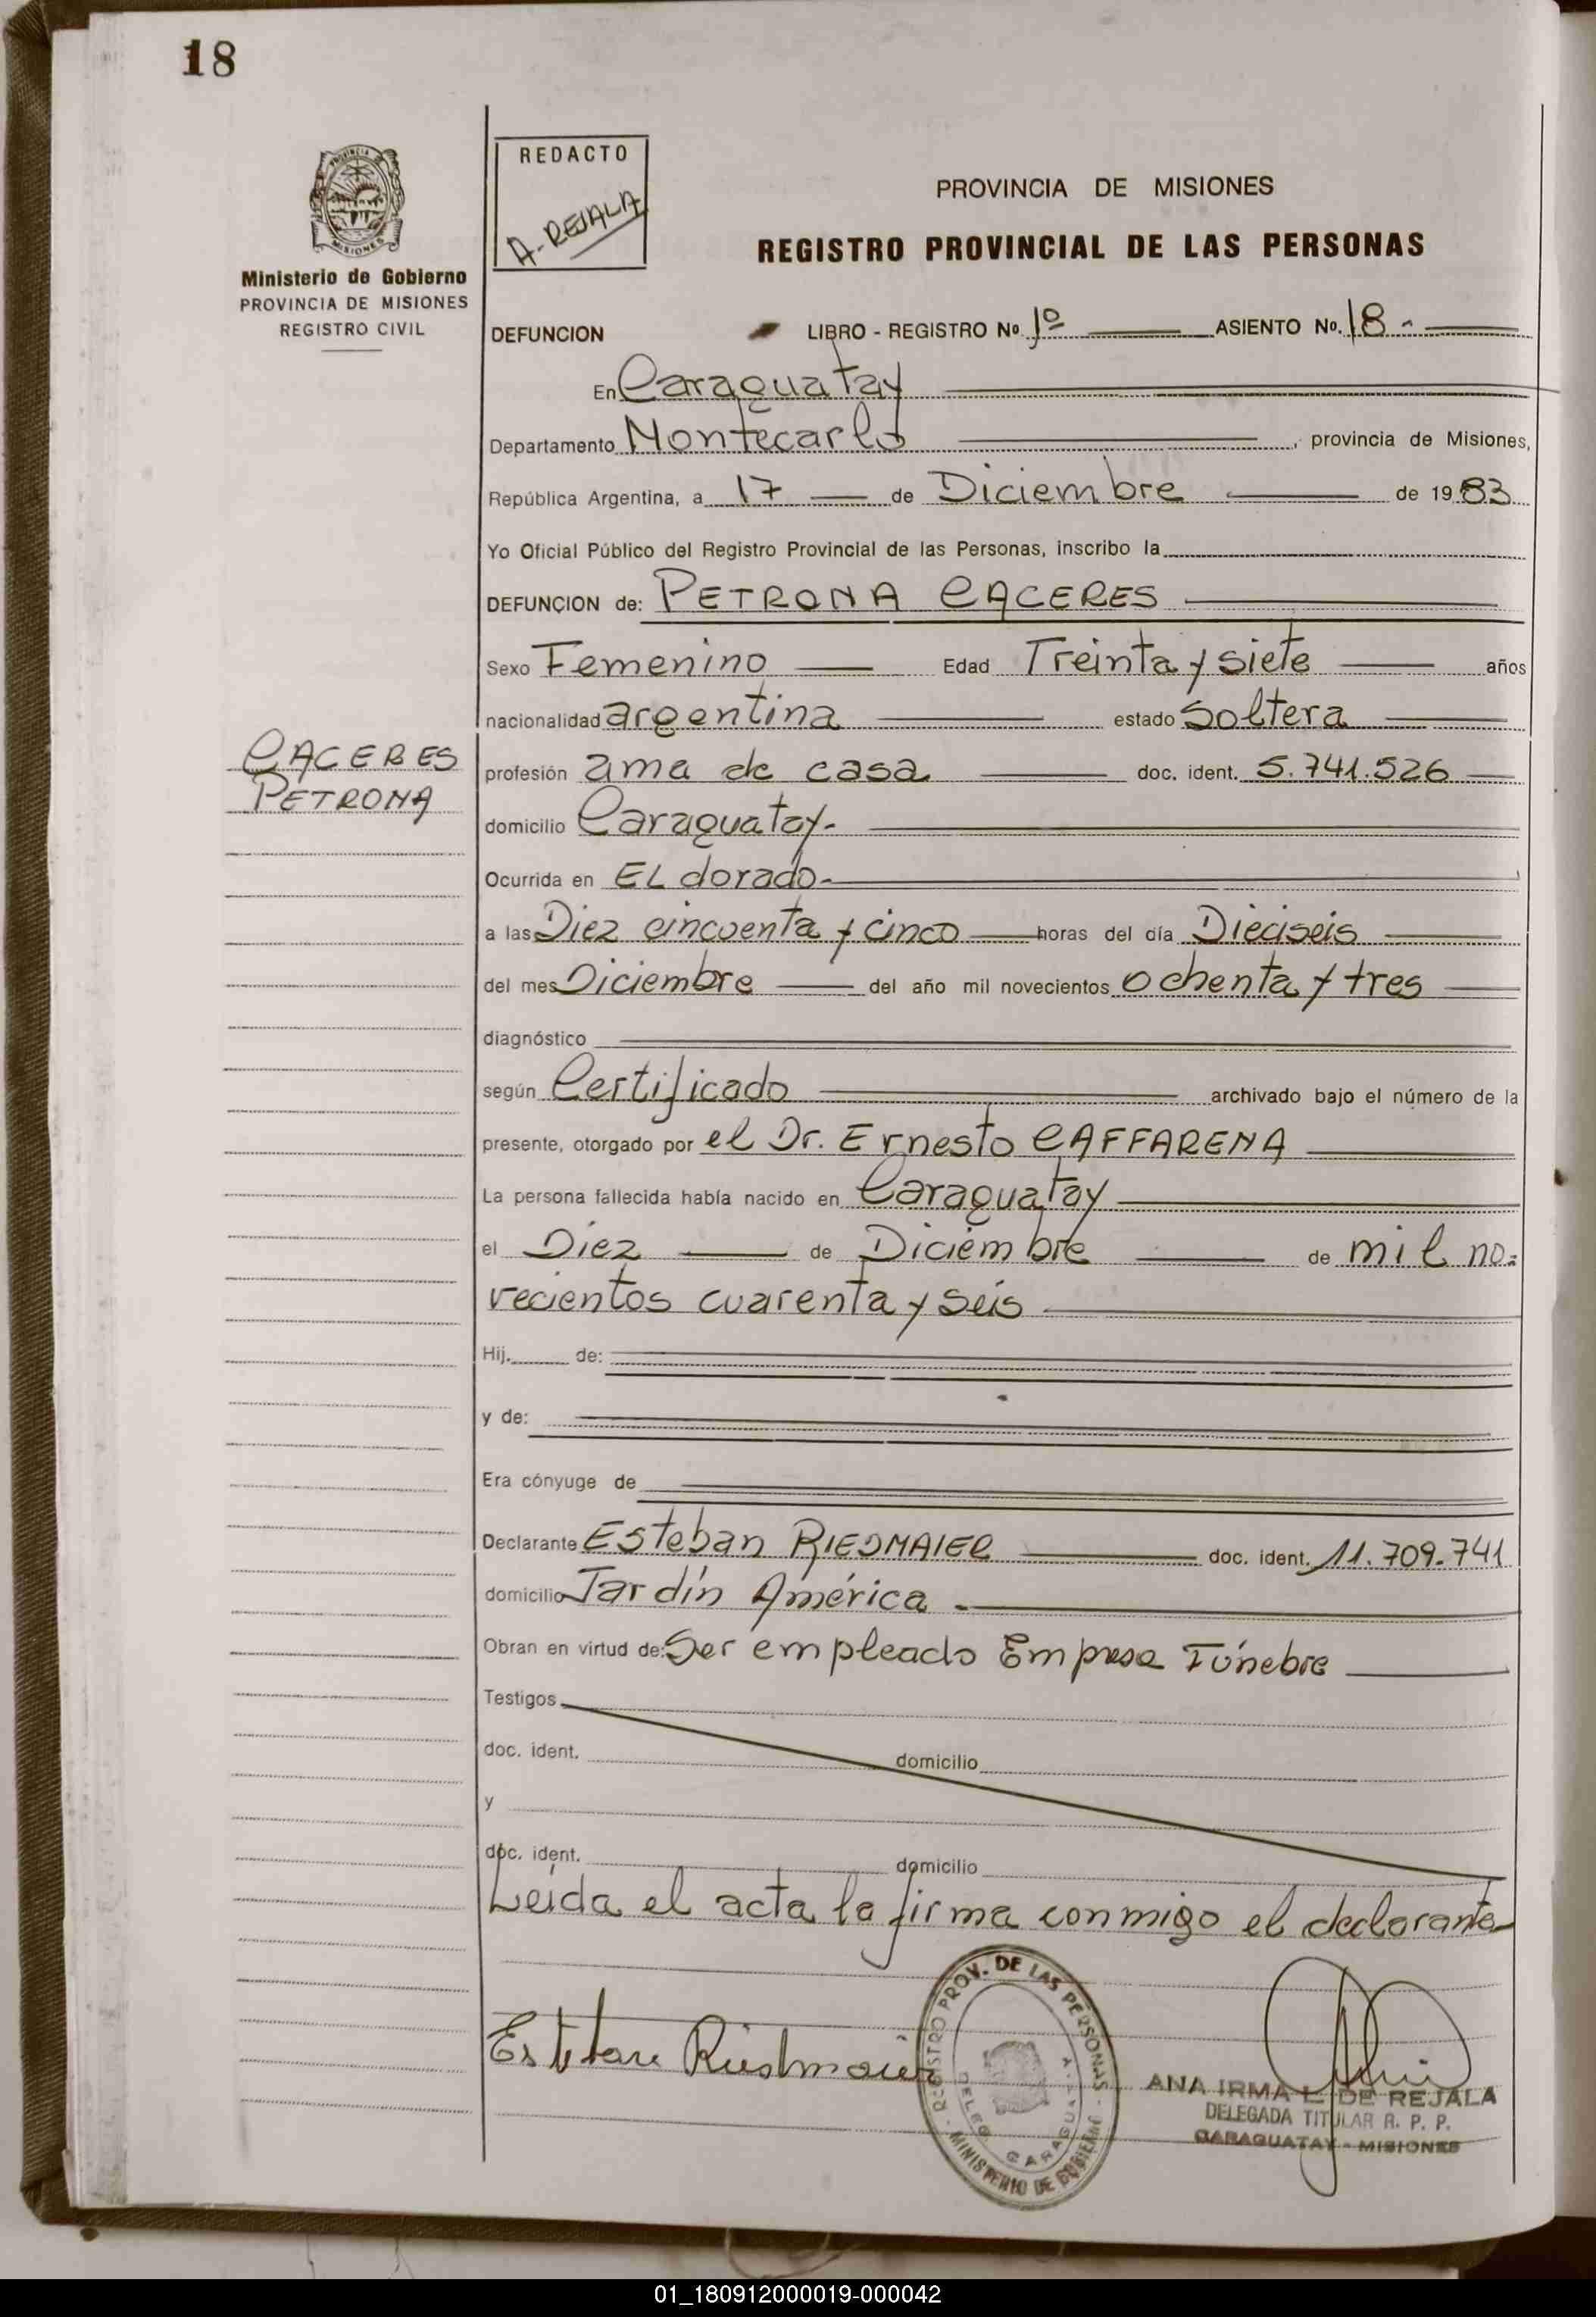 18
PROVINCIA
MISIONES
Ministerio de Gobierno
PROVINCIA DE MISIONES
REGISTRO CIVIL
REDACTO
A. REJALA
PROVINCIA DE MISIONES
REGISTRO PROVINCIAL DE LAS PERSONAS
DEFUNCION LIBRO - REGISTRO Nº. 1º ASIENTO Nº. 18 -
En Caraguatay
Departamento Montecarlo , provincia de Misiones,
República Argentina, a 17 de Diciembre de 1983
Yo Oficial Público del Registro Provincial de las Personas, inscribo la
DEFUNCION de: PETRONA CACERES
Sexo Femenino Edad Treinta y siete años
nacionalidad argentina estado Soltera
CACERES
PETRONA
profesión ama de casa doc. ident. 5.741.526
domicilio Caraguatay.-
Ocurrida en EL dorado.-
a las Diez cincuenta y cinco horas del día Dieciseis
del mes Diciembre del año mil novecientos ochenta y tres
diagnóstico
según Certificado archivado bajo el número de la
presente, otorgado por el Dr. Ernesto CAFFARENA
La persona fallecida había nacido en Caraguatay
el Diez de Diciembre de mil no-
vecientos cuarenta y seis
Hij. de:
y de:
Era cónyuge de
Declarante Esteban RIEDMAIER doc. ident. 11.709.741
domicilio Jardín América.
Obran en virtud de: Ser empleado Empresa Fúnebre
Testigos
doc. ident. domicilio
y
doc. ident. domicilio
Leída el acta la firma conmigo el declarante
Esteban Riedmaier
REGISTRO PROV. DE LAS PERSONAS - MINISTERIO DE GOBIERNO -
DELEG. CARAGUATAY
ANA IRMA L. DE REJALA
DELEGADA TITULAR R. P. P.
CARAGUATAY - MISIONES
01_180912000019-000042